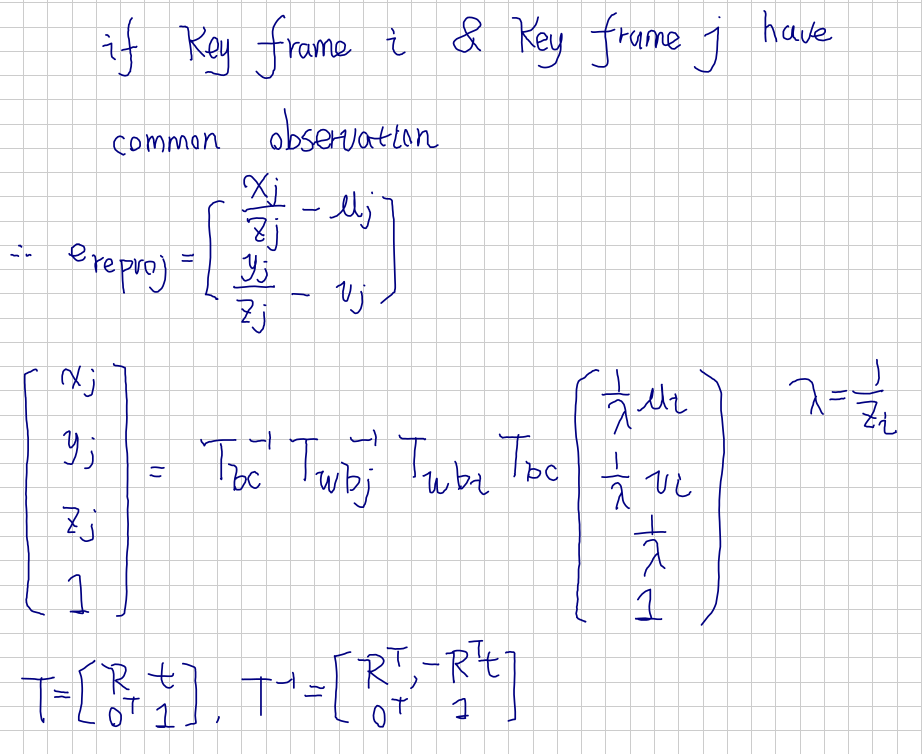 if Key frame i & Key frame j have
common observation
∴ e_reproj = [ x_j/z_j − u_j ; y_j/z_j − v_j ]
[ x_j ; y_j ; z_j ; 1 ] = T_bc^-1 T_wbj^-1 T_wbi T_bc [ 1/λ u_i ; 1/λ v_i ; 1/λ ; 1 ] λ = 1/z_i
T = [ R t ; 0^T 1 ], T^-1 = [ R^T, −R^T t ; 0^T 1 ]